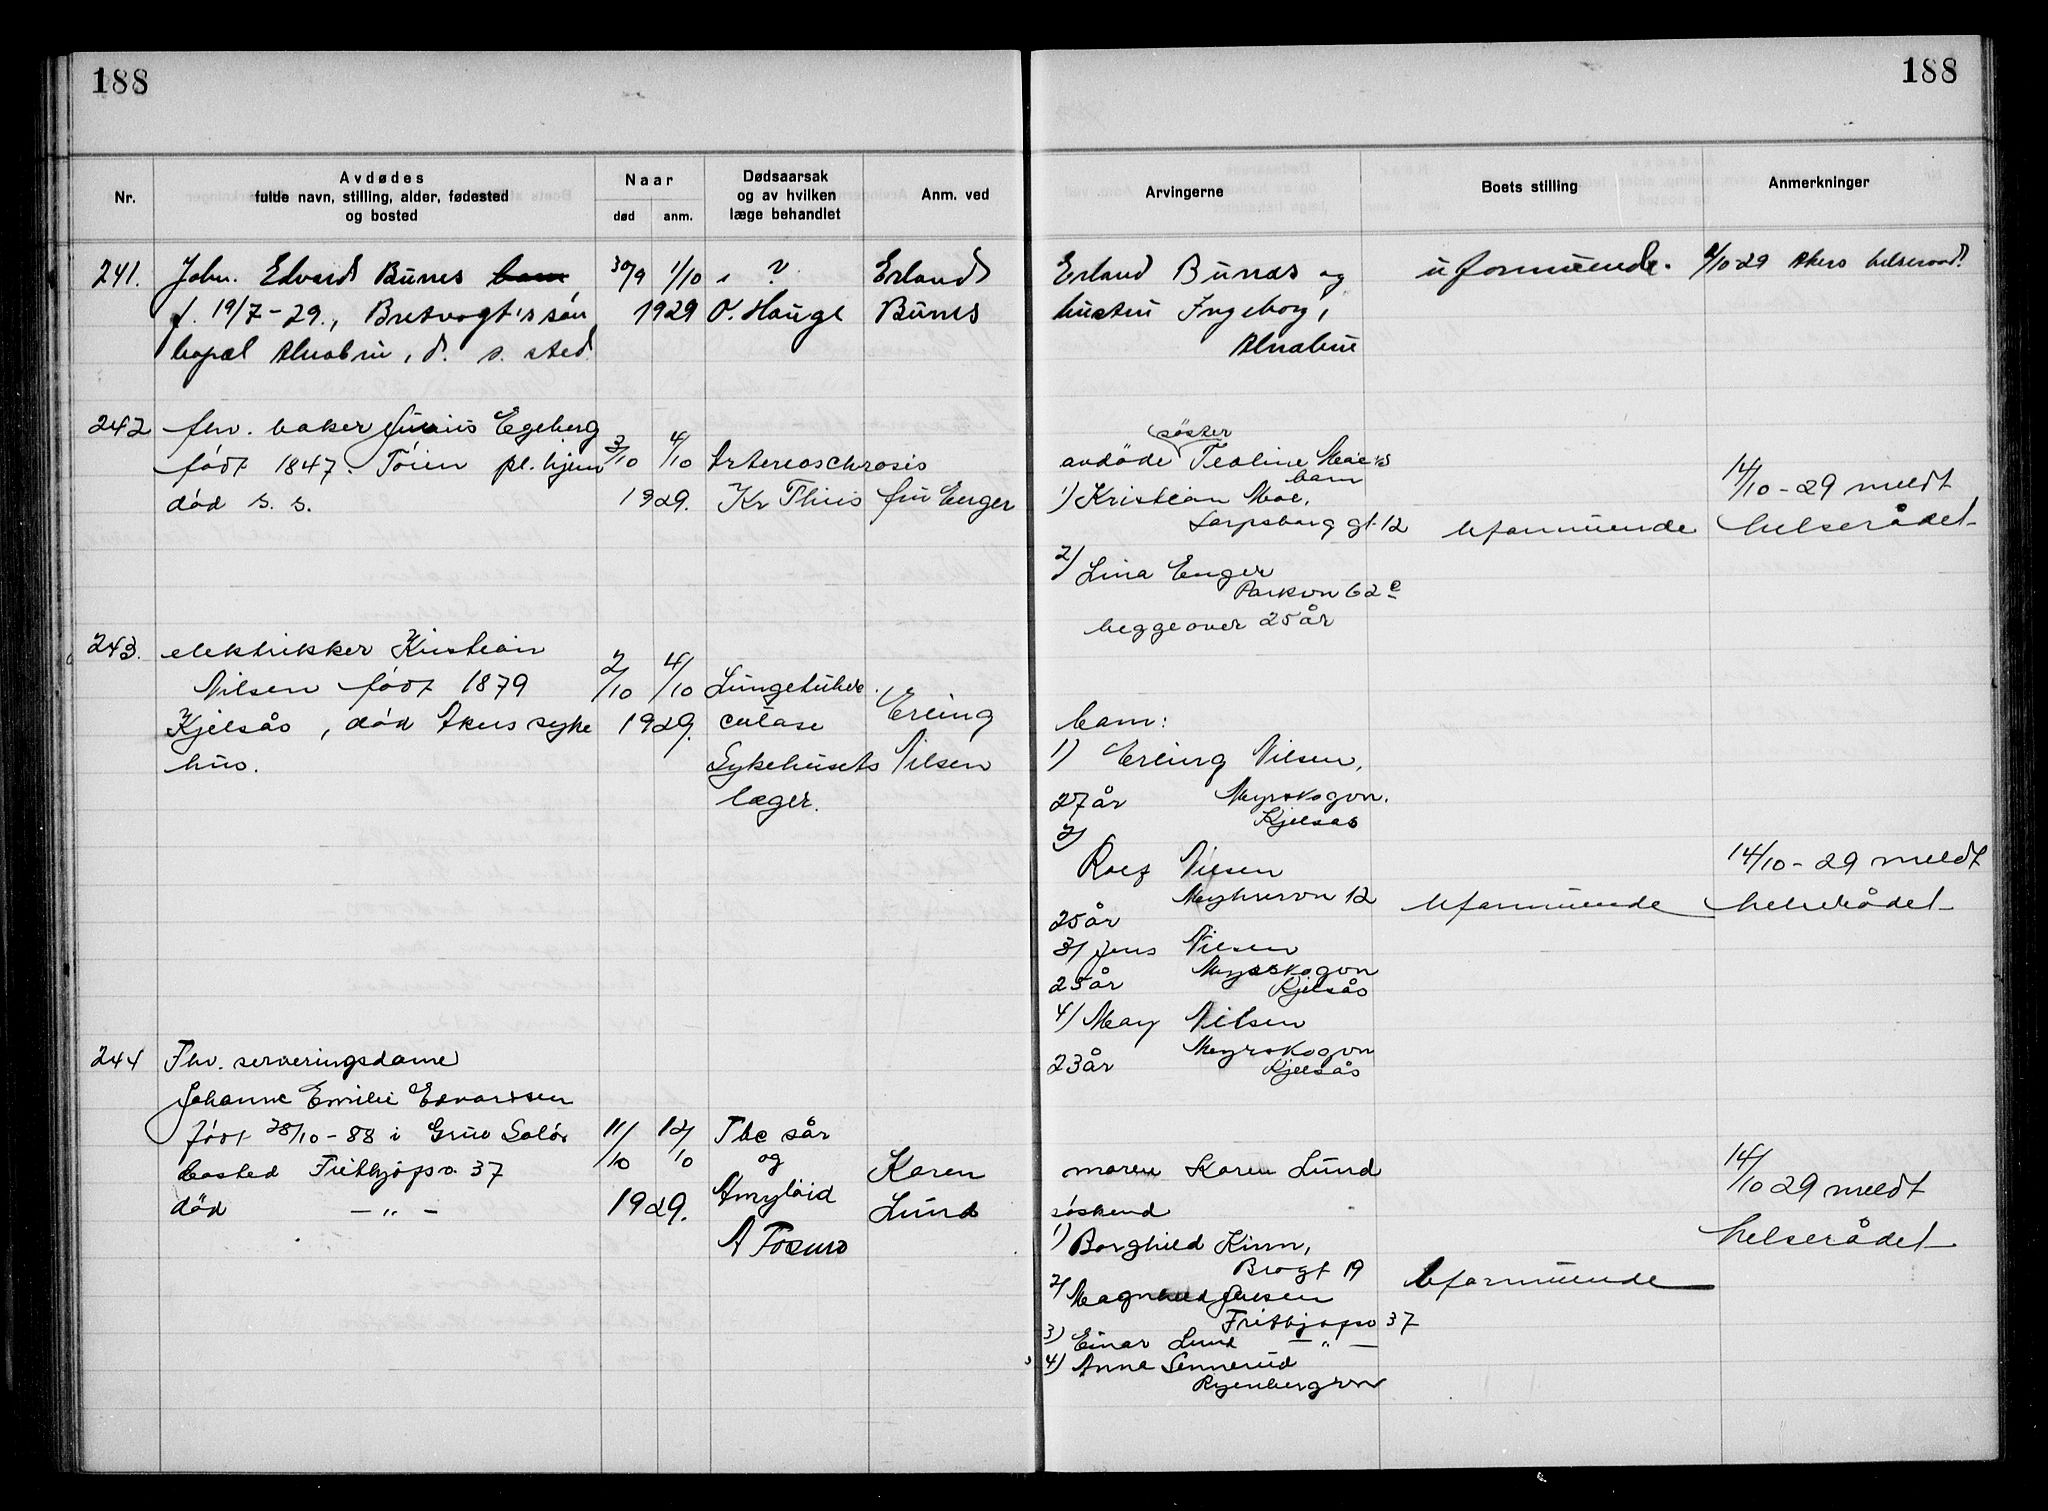 188
188
Nr.
Avdødes
fulde navn, stilling, alder, fødested
og bosted
Naar
død
anm.
Dødsaarsak
og av hvilken
læge behandlet
Anm. ved
Arvingerne
Boets stilling
Anmerkninger
241. John. Edvard Bunes barn 30/9 1/10 ? Erland
f. 19/7-29., Bretvogt's søn 1929 O. Hauge Bunes
kapel Alnabru, d. s. sted.
Erland Bunæs og uformuende. 29 Akers helseraad.
hustru Ingeborg,
Alnabru
242 fhv. baker Junius Egeberg
født 1847. Töien pl. hjem 3/10 4/10 Arterioschrosis
død s. s. 1929. Kr Thiis fru Enger
søster
avdöde Teoline Moe's
barn
1) Kristian Moe,
Sarpsborg gt. 12
2) Lina Enger
Parkvn 62 c
begge over 25 år
Uformuende
14/10-29 meldt
helserådet
243. elektrikker Kristian
Nilsen født 1879 2/10 4/10 Lungetuber
Kjelsås, død Akers syke 1929. culose Erling
hus. Sykehusets Nilsen
læger.
barn:
1) Erling Nilsen,
27 år Myrskogvn.
Kjelsås
2)
Rolf Nilsen
Meyhrervn 12
25 år
3) Jens Nilsen
Myrskogvn
25 år Kjelsås
4) May Nilsen
Myrskogvn
23 år Kjelsås
Uformuende
14/10-29 meldt
helserådet
244 Fhv. serveringsdame
Johanne Emilie Edvardsen
født 28/10-88 i Grue Solör 11/10 12/10 Tbc sår
bosted Frithjofsv. 37 og Karen
død — " — 1929. Amyloid Lund
A Tosmo
moren Karen Lund
søskend
1) Borghild Kinn,
Brogt 19
2) Magnhild Jensen
Frithjofsv 37
3) Einar Lund — " —
4) Anna Sennerud
Ryenbergvn
Uformuende
14/10 29 meldt
helserådet